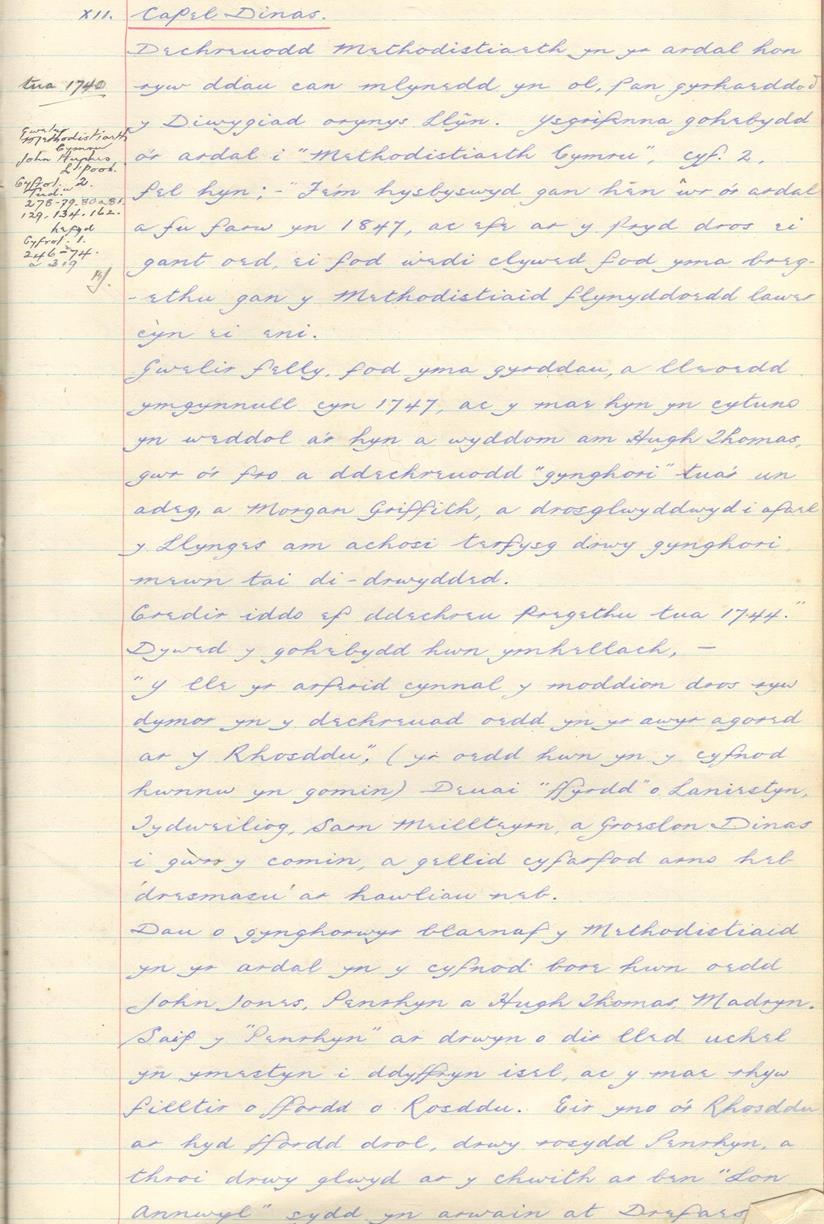 XII. Capel Dinas.
Dechreuodd Methodistiaeth yn yr ardal hon
tua 1740
ryw ddau can mlynedd yn ol, pan gyrhaeddodd
y Diwygiad orynys Llŷn. Ysgrifenna gohebydd
o'r ardal i "Methodistiaeth Cymru", cyf. 2,
fel hyn; - "Fe'm hysbyswyd gan hên ŵr o'r ardal
a fu farw yn 1847, ac efe ar y pryd dros ei
gant oed, ei fod wedi clywed fod yma breg-
-ethu gan y Methodistiaid flynyddoedd lawer
cyn ei eni.
Gwelir
Methodistiaeth
Cymru
John Hughes
L'pool.
Cyfrol 2.
Tud.
278-79. 80 a 81.
129. 134. 162.
hefyd
Cyfrol. 1.
246-74.
a 319
Gwelir felly, fod yma gyrddau, a lleoedd
ymgynnull cyn 1747, ac y mae hyn yn cytuno
yn weddol a'r hyn a wyddom am Hugh Thomas,
gwr o'r fro a ddechreuodd "gynghori" tua'r un
adeg, a Morgan Griffith, a drosglwyddwyd i afael
y Llynges am achosi terfysg drwy gynghori
mewn tai di-drwydded.
Credir iddo ef ddechreu pregethu tua 1744."
Dywed y gohebydd hwn ymhellach, -
"Y lle yr arferid cynnal y moddion dros ryw
dymor yn y dechreuad oedd yn yr awyr agored
ar y Rhosddu", (yr oedd hwn yn y cyfnod
hwnnw yn gomin) Deuai "ffyrdd" o Laniestyn,
Tydweiliog, Sarn Meillteyrn, a Groeslon Dinas
i gwrr y comin, a gellid cyfarfod arno heb
'dresmasu' ar hawliau neb.
Dau o gynghorwyr blaenaf y Methodistiaid
yn yr ardal yn y cyfnod bore hwn oedd
John Jones, Penrhyn a Hugh Thomas, Madryn.
Saif y "Penrhyn" ar drwyn o dir lled uchel
yn ymestyn i ddyffryn isel, ac y mae rhyw
filltir o ffordd o Rosddu. Eir yno o'r Rhosddu
ar hyd ffordd drol, drwy rosydd Penrhyn, a
throi drwy glwyd ar y chwith ar ben "Lon
Annwyl" sydd yn arwain at